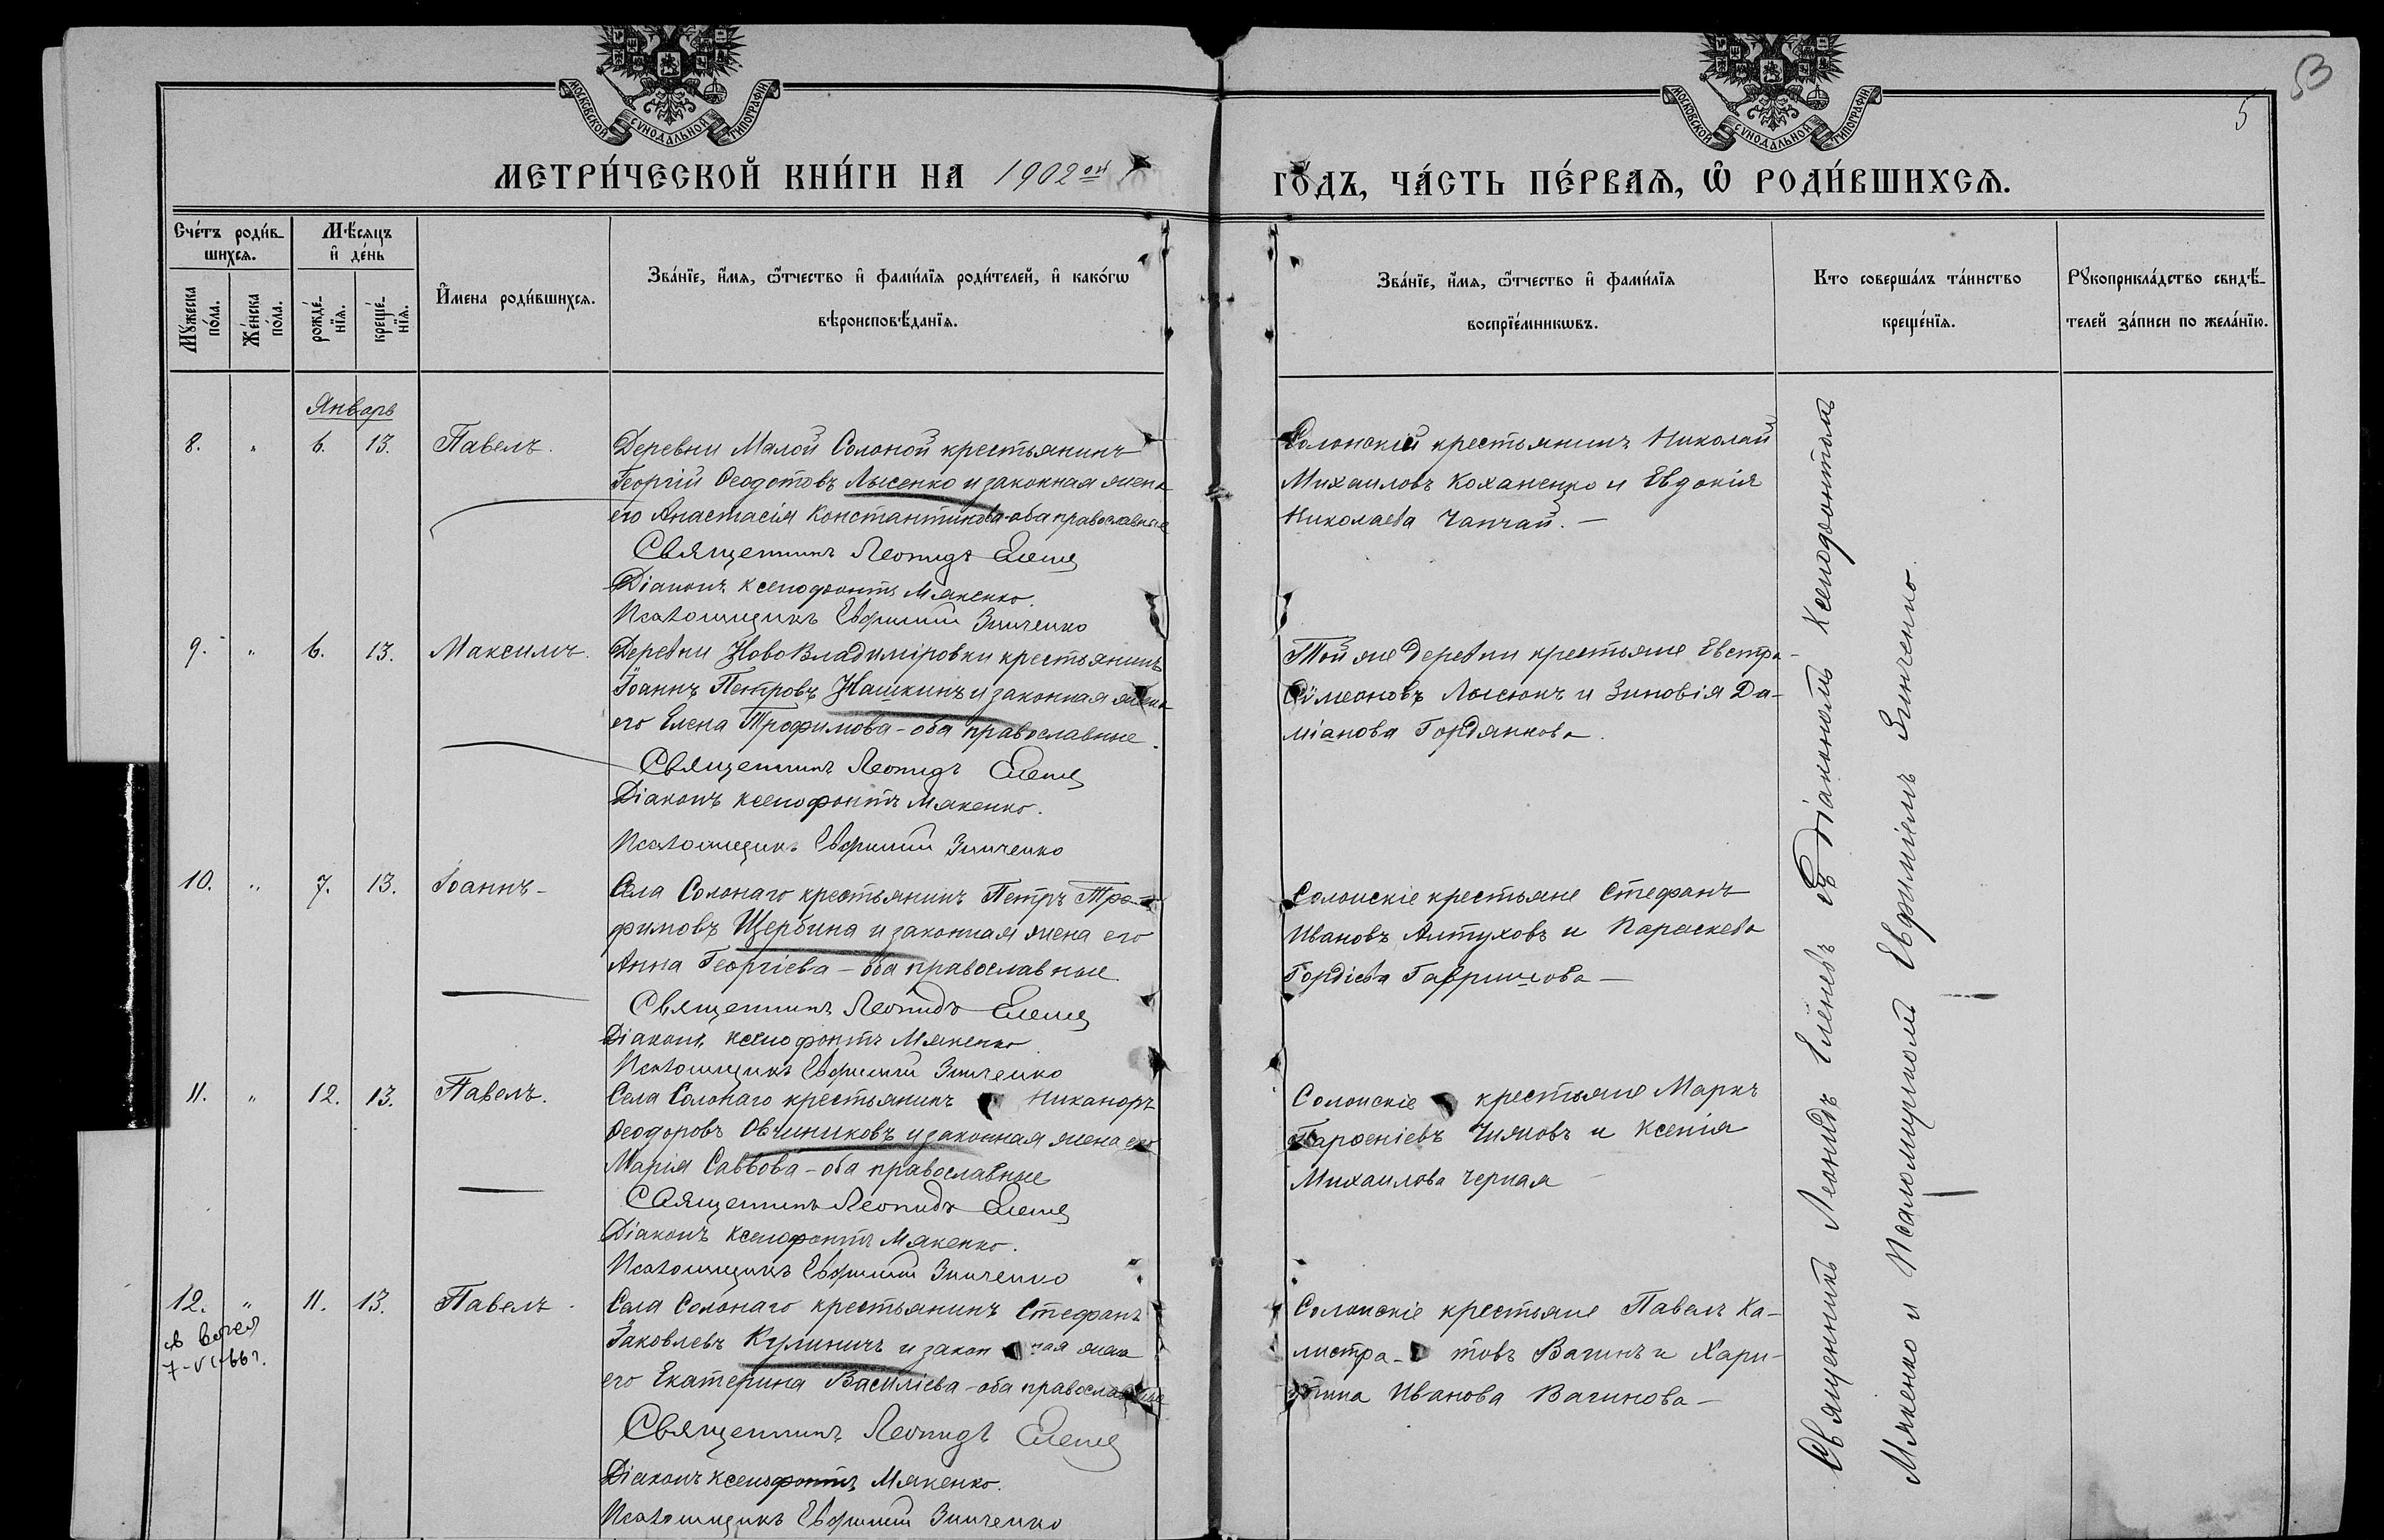 53
5
МОСКОВСКОЙ СѴНОДАЛЬНОЙ ТИПОГРАФІИ
МОСКОВСКОЙ СѴНОДАЛЬНОЙ ТИПОГРАФІИ
МЕТРИ́ЧЕСКОЙ КНИ́ГИ НА 1902ой ГО́ДЪ, ЧА́СТЬ ПЕ́РВАѦ, Ѡ҆ РОДИ́ВШИХСѦ.
Сче́тъ роди́в-
шихсѧ.
Мѣ́сѧцъ
и҆ де́нь
Мꙋ́жеска
по́ла.
Же́нска
по́ла.
рожде́-
нїѧ.
креще́-
нїѧ.
И҆́мена роди́вшихсѧ.
Зва́нїе, и҆́мѧ, ѻ҆́тчество и҆ фами́лїѧ роди́телей, и҆ како́гѡ
вѣроисповѣ́данїѧ.
Зва́нїе, и҆́мѧ, ѻ҆́тчество и҆ фами́лїѧ
воспрїе́мникѡвъ.
Кто соверша́лъ та́инство
креще́нїѧ.
Рꙋкоприкла́дство свидѣ́-
телей за́писи по жела́нїю.
Январь
8. " 6. 13. Павелъ.
Деревни Малой Солоной крестьянинъ
Георгій Ѳеодотовъ Лысенко и законная жена
его Анастасія Константинова - оба православные
Священникъ Леонидъ Еленевъ
Діаконъ Ксенофонтъ Мякенко.
Псаломщикъ Евфимій Зинченко
Солонскій крестьянинъ Николай
Михаиловъ Коханенко и Евдокія
Николаева Чапчай. —
9. " 6. 13. Максимъ.
Деревни НовоВладиміровки крестьянинъ
Іоаннъ Петровъ Нашкинъ и законная жена
его Елена Трофимова - оба православные.
Священникъ Леонидъ Еленевъ
Діаконъ Ксенофонтъ Мякенко.
Псаломщикъ Евфимій Зинченко
Той же деревни крестьяне Евстра-
Сѵмеоновъ Лысюкъ и Зиновія Да-
міанова Гордянкова.
10. " 7. 13. Іоаннъ -
Села Солонаго крестьянинъ Петръ Тро-
фимовъ Щербина и законная жена его
Анна Георгіева - оба православные
Священникъ Леонидъ Еленевъ
Діаконъ Ксенофонтъ Мякенко
Псаломщикъ Евфимій Зинченко
Солонскіе крестьяне Стефанъ
Ивановъ Алтуховъ и Параскева
Гордіева Гавришова —
11. " 12. 13. Павелъ.
Села Солонаго крестьянинъ Никаноръ
Ѳеодоровъ Овчиниковъ и законная жена его
Марія Саввова - оба православные
Священникъ Леонидъ Еленевъ
Діаконъ Ксенофонтъ Мякенко.
Псаломщикъ Евфимій Зинченко
Солонскіе крестьяне Маркъ
Парѳеніевъ Чижовъ и Ксенія
Михаилова Черная
12. " 11. 13. Павелъ.
7-VI-66 г.
Села Солонаго крестьянинъ Стефанъ
Іаковлевъ Кулиничъ и законная жена
его Екатерина Василіева - оба православные
Священникъ Леонидъ Еленевъ
Діаконъ Ксенофонтъ Мякенко.
Псаломщикъ Евфимій Зинченко
Солонскіе крестьяне Павелъ Ка-
листратовъ Вагинъ и Хари-
тина Иванова Вагинова —
Священникъ Леонидъ Еленевъ съ Діакономъ Ксенофонтомъ
Мякенко и Псаломщикомъ Евфиміемъ Зинченко.